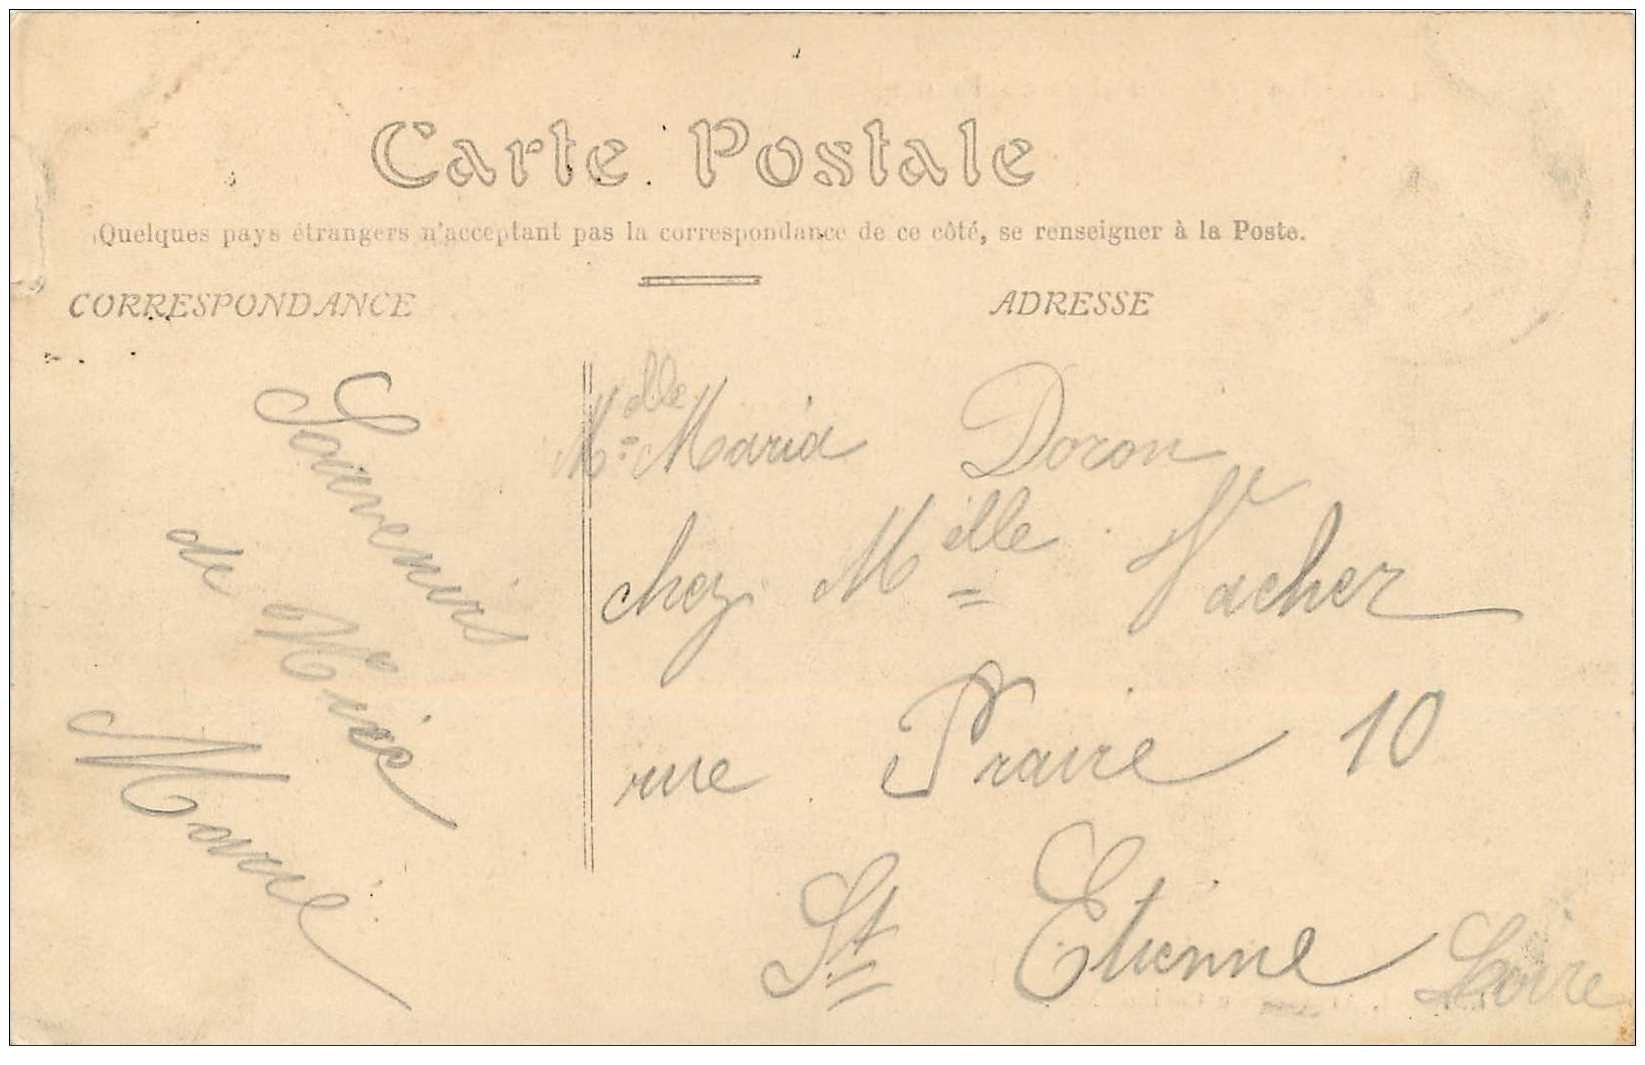 Carte Postale
Quelques pays étrangers n'acceptent pas la correspondance de ce côté, se renseigner à la Poste.
CORRESPONDANCE
ADRESSE
Souvenirs
de
Marie
Melle Maria Doron
chez Melle Vacher
rue Praire 10
St Etienne Loire